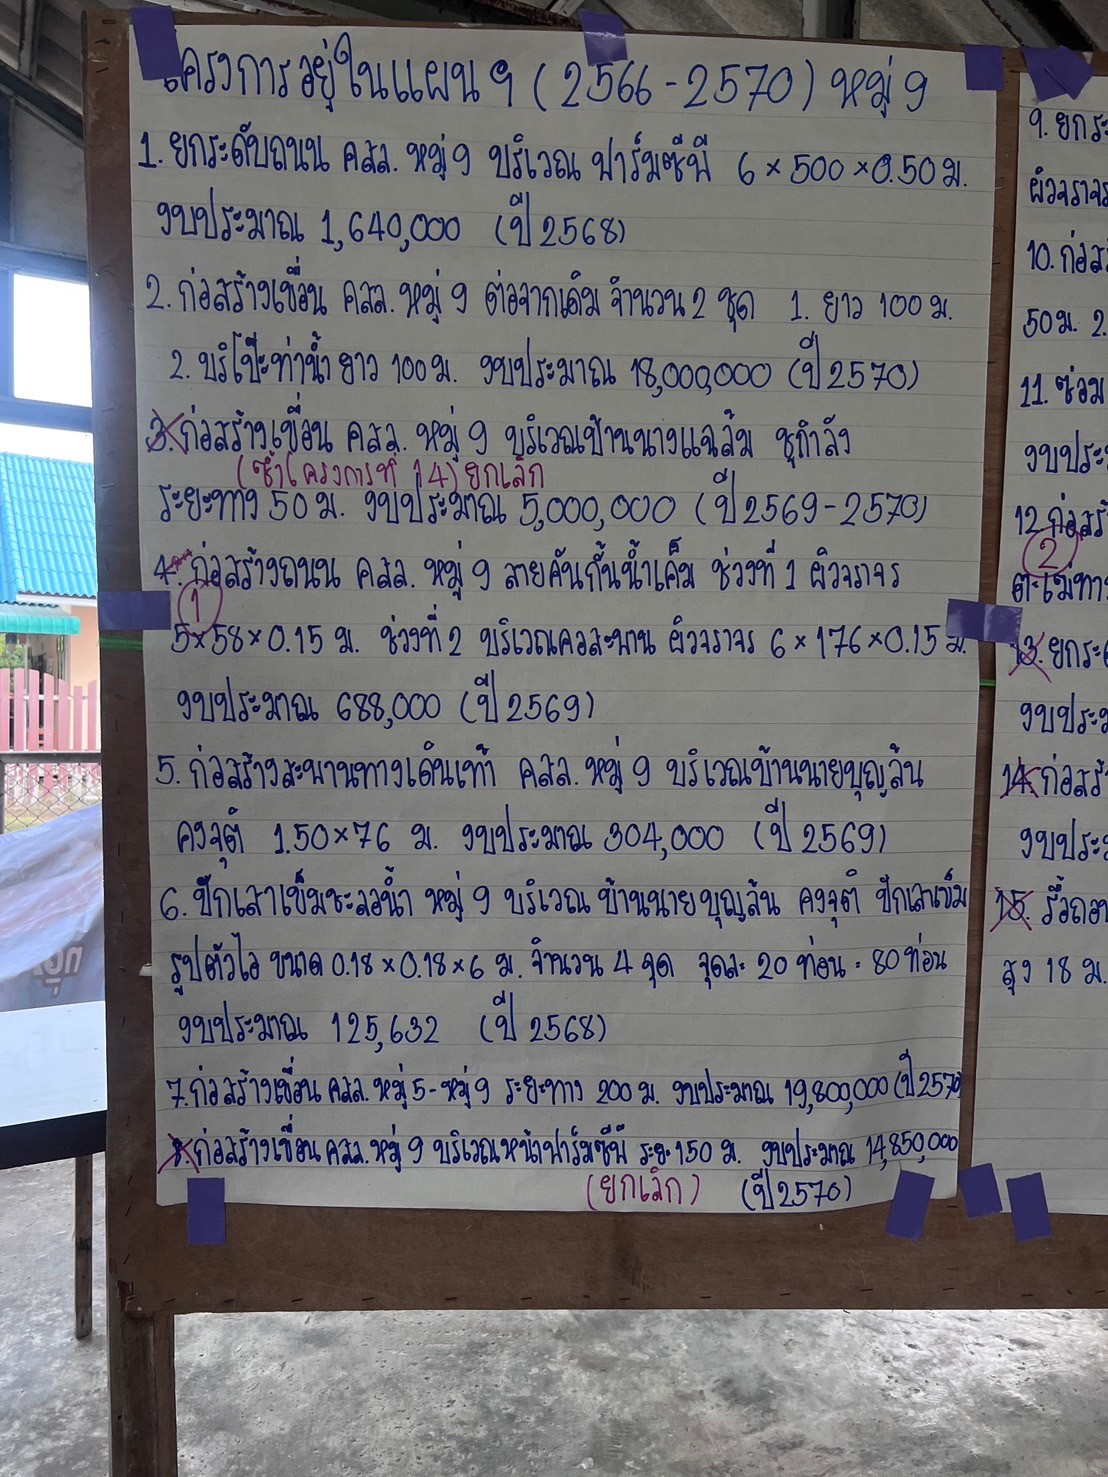 โครงการอยู่ในแผน ฯ (2566-2570) หมู่ 9
1. ยกระดับถนน คสล. หมู่ 9 บริเวณ ฟาร์มซีพี 6×500×0.50 ม.
งบประมาณ 1,640,000 (ปี 2568)
2. ก่อสร้างเขื่อน คสล. หมู่ 9 ต่อจากเดิม จำนวน 2 ชุด 1. ยาว 100 ม.
2. บริโป๊ะท่าน้ำ ยาว 100 ม. งบประมาณ 18,000,000 (ปี 2570)
3. ก่อสร้างเขื่อน คสล. หมู่ 9 บริเวณบ้านนางแฉล้ม ชูกำลัง
(ซ้ำโครงการที่ 14) ยกเลิก
ระยะทาง 50 ม. งบประมาณ 5,000,000 (ปี 2569-2570)
4. ก่อสร้างถนน คสล. หมู่ 9 สายคันกั้นน้ำเค็ม ช่วงที่ 1 ผิวจราจร
1
5×58×0.15 ม. ช่วงที่ 2 บริเวณคอสะพาน ผิวจราจร 6×176×0.15 ม.
งบประมาณ 688,000 (ปี 2569)
5. ก่อสร้างสะพานทางเดินเท้า คสล. หมู่ 9 บริเวณบ้านนายบุญล้น
คงจุติ 1.50×76 ม. งบประมาณ 304,000 (ปี 2569)
6. ปักเสาเข็มชะลอน้ำ หมู่ 9 บริเวณ บ้านนายบุญล้น คงจุติ ปักเสาเข็ม
รูปตัวไอ ขนาด 0.18×0.18×6 ม. จำนวน 4 จุด จุดละ 20 ท่อน = 80 ท่อน
งบประมาณ 125,632 (ปี 2568)
7. ก่อสร้างเขื่อน คสล. หมู่ 5 - หมู่ 9 ระยะทาง 200 ม. งบประมาณ 19,800,000 (ปี 2570)
8. ก่อสร้างเขื่อน คสล. หมู่ 9 บริเวณหน้าฟาร์มซีพี ระยะ 150 ม. งบประมาณ 14,850,000
(ยกเลิก) (ปี 2570)
9. ยกระ
ผิวจราจร
10. ก่อสร้
50 ม. 2.
11. ซ่อม
งบประ
12. ก่อสร้
2
13. ยกระ
งบประม
14. ก่อสร้
งบประม
15. รื้อถอน
สูง 18 ม.